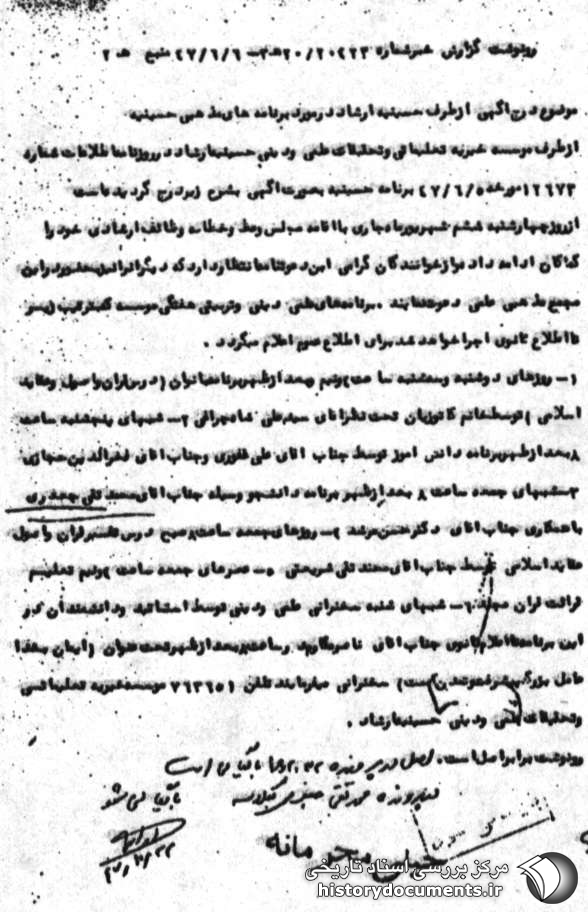 رونوشت گزارش خبر شماره ۲۰/۲۰۴۲۳ ﻫ ۳ـ ۴۷/۶/۶ منبع ﻫ ۲
موضوع درج آگهی از طرف حسینیه ارشاد در مورد برنامه های مذهبی حسینیه
از طرف موسسه خیریه تعلیماتی و تحقیقات علمی و دینی حسینیه ارشاد در روزنامه اطلاعات شماره
۱۲۶۷۳ مورخه ۴۷/۶/۵ برنامه حسینیه بصورت آگهی بشرح زیر درج گردیده است
از روز چهارشنبه ششم شهریورماه جاری با اقامه مجلس وعظ و خطابه وظائف ارشادی خود را
کماکان ادامه داد و از خوانندگان گرامی این دعوتنامه انتظار دارد که دیگران را نیز بحضور در این
مجمع مذهبی علمی دعوت نمایند . برنامه های علمی دینی و تربیتی هفتگی موسسه که بترتیب زیر
تا اطلاع ثانوی اجرا خواهد شد برای اطلاع عموم اعلام میگردد .
۱ـ روزهای دوشنبه و سه شنبه ساعت ونیم بعد از ظهر برنامه بانوان ( درس قرآن و اصول و عقاید
اسلامی ) توسط خانم کاتوزیان تحت نظر آقای سید علی شاهچراغی ۲ـ شبهای پنجشنبه ساعت
۸ بعد از ظهر برنامه دانش آموز توسط جناب آقای علی غفوری و جناب آقای فخرالدین حجازی
۳ـ شبهای جمعه ساعت ۸ بعد از ظهر برنامه دانشجو وسیله جناب آقای محمد تقی جعفری
با همکاری جناب آقای دکتر ۴ـ روزهای جمعه ساعت صبح درس تفسیر قرآن و اصول
عقاید اسلامی توسط جناب آقای محمد تقی شریعتی ۵ـ عصرهای جمعه ساعت ونیم تعلیم
قرائت قرآن مجید ۶ـ شبهای شنبه سخنرانی علمی و دینی توسط اساتید و دانشمندان که در
این برنامه تا اعلام ثانوی جناب آقای ناصر مکارم در ساعت بعد از ظهر تحت عنوان ( ایمان بخدا
عامل بزرگ پیشرفت و تمدن است ) سخنرانی میفرمایند تلفن ۷۶۳۶۵۱ موسسه خیریه تعلیماتی
و تحقیقات علمی و دینی حسینیه ارشاد .
رونوشت برابر اصل است . اصل در پرونده بایگانی است
در پرونده محمد تقی جعفری
بایگانی شود
خیلی محرمانه
مرکز بررسی اسناد تاریخی
historydocuments.ir